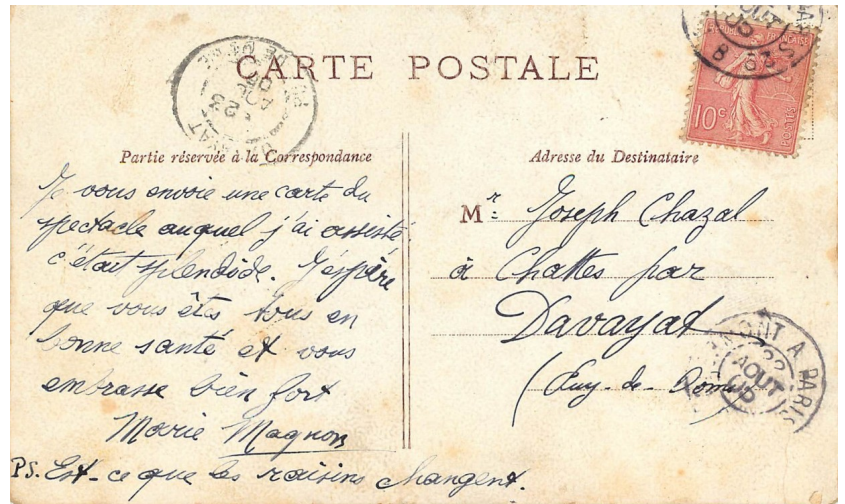 CARTE POSTALE
Partie réservée à la Correspondance
Je vous envoie une carte du
spectacle auquel j'ai assisté,
c'était splendide. J'espère
que vous êtes tous en
bonne santé et vous
embrasse bien fort
Marie Magnon
PS. Est-ce que les raisins changent.
FRANÇAISE
10c
POSTES
Adresse du Destinataire
Mr Joseph Chazal
à Chattes par
Davayat
(Puy-de-Dôme)
A PARIS
22
AOUT
05
23